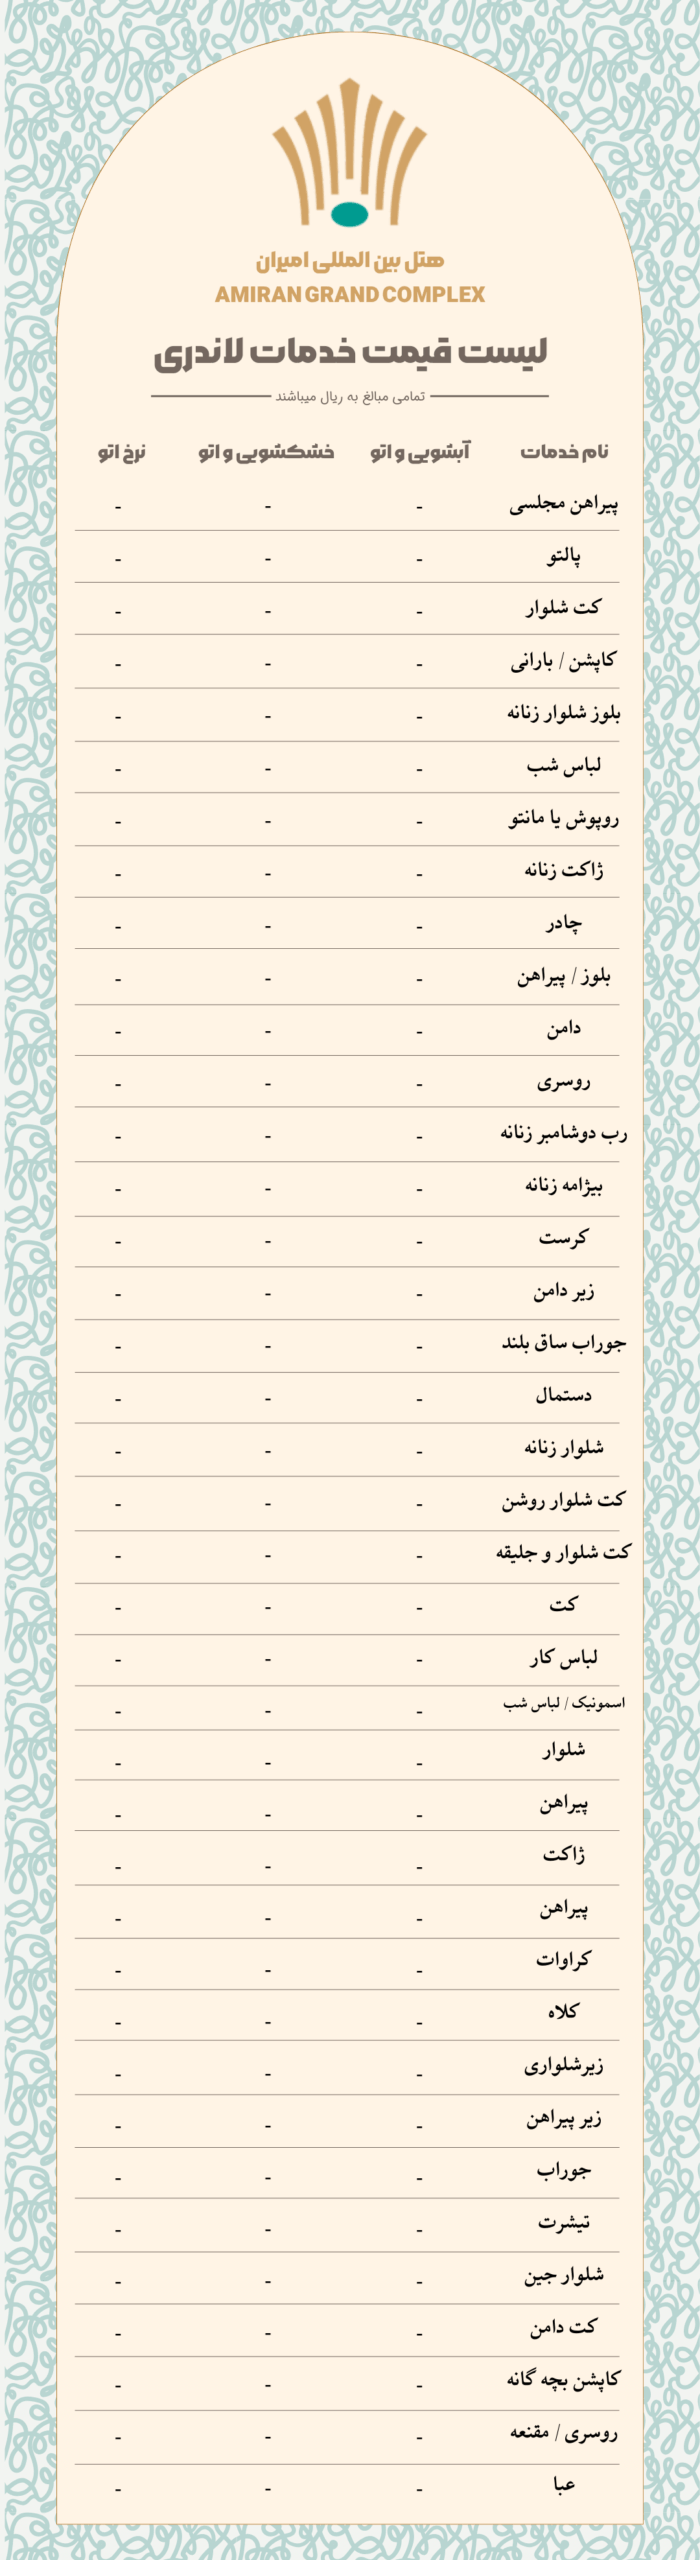 هتل بین المللی امیران
AMIRAN GRAND COMPLEX
لیست قیمت خدمات لاندری
تمامی مبالغ به ریال میباشند
نام خدمات آبشویی و اتو خشکشویی و اتو نرخ اتو
پیراهن مجلسی - - -
پالتو - - -
کت شلوار - - -
کاپشن / بارانی - - -
بلوز شلوار زنانه - - -
لباس شب - - -
روپوش یا مانتو - - -
ژاکت زنانه - - -
چادر - - -
بلوز / پیراهن - - -
دامن - - -
روسری - - -
رب دوشامبر زنانه - - -
بیژامه زنانه - - -
کرست - - -
زیر دامن - - -
جوراب ساق بلند - - -
دستمال - - -
شلوار زنانه - - -
کت شلوار روشن - - -
کت شلوار و جلیقه - - -
کت - - -
لباس کار - - -
اسمونیک / لباس شب - - -
شلوار - - -
پیراهن - - -
ژاکت - - -
پیراهن - - -
کراوات - - -
کلاه - - -
زیرشلواری - - -
زیر پیراهن - - -
جوراب - - -
تیشرت - - -
شلوار جین - - -
کت دامن - - -
کاپشن بچه گانه - - -
روسری / مقنعه - - -
عبا - - -